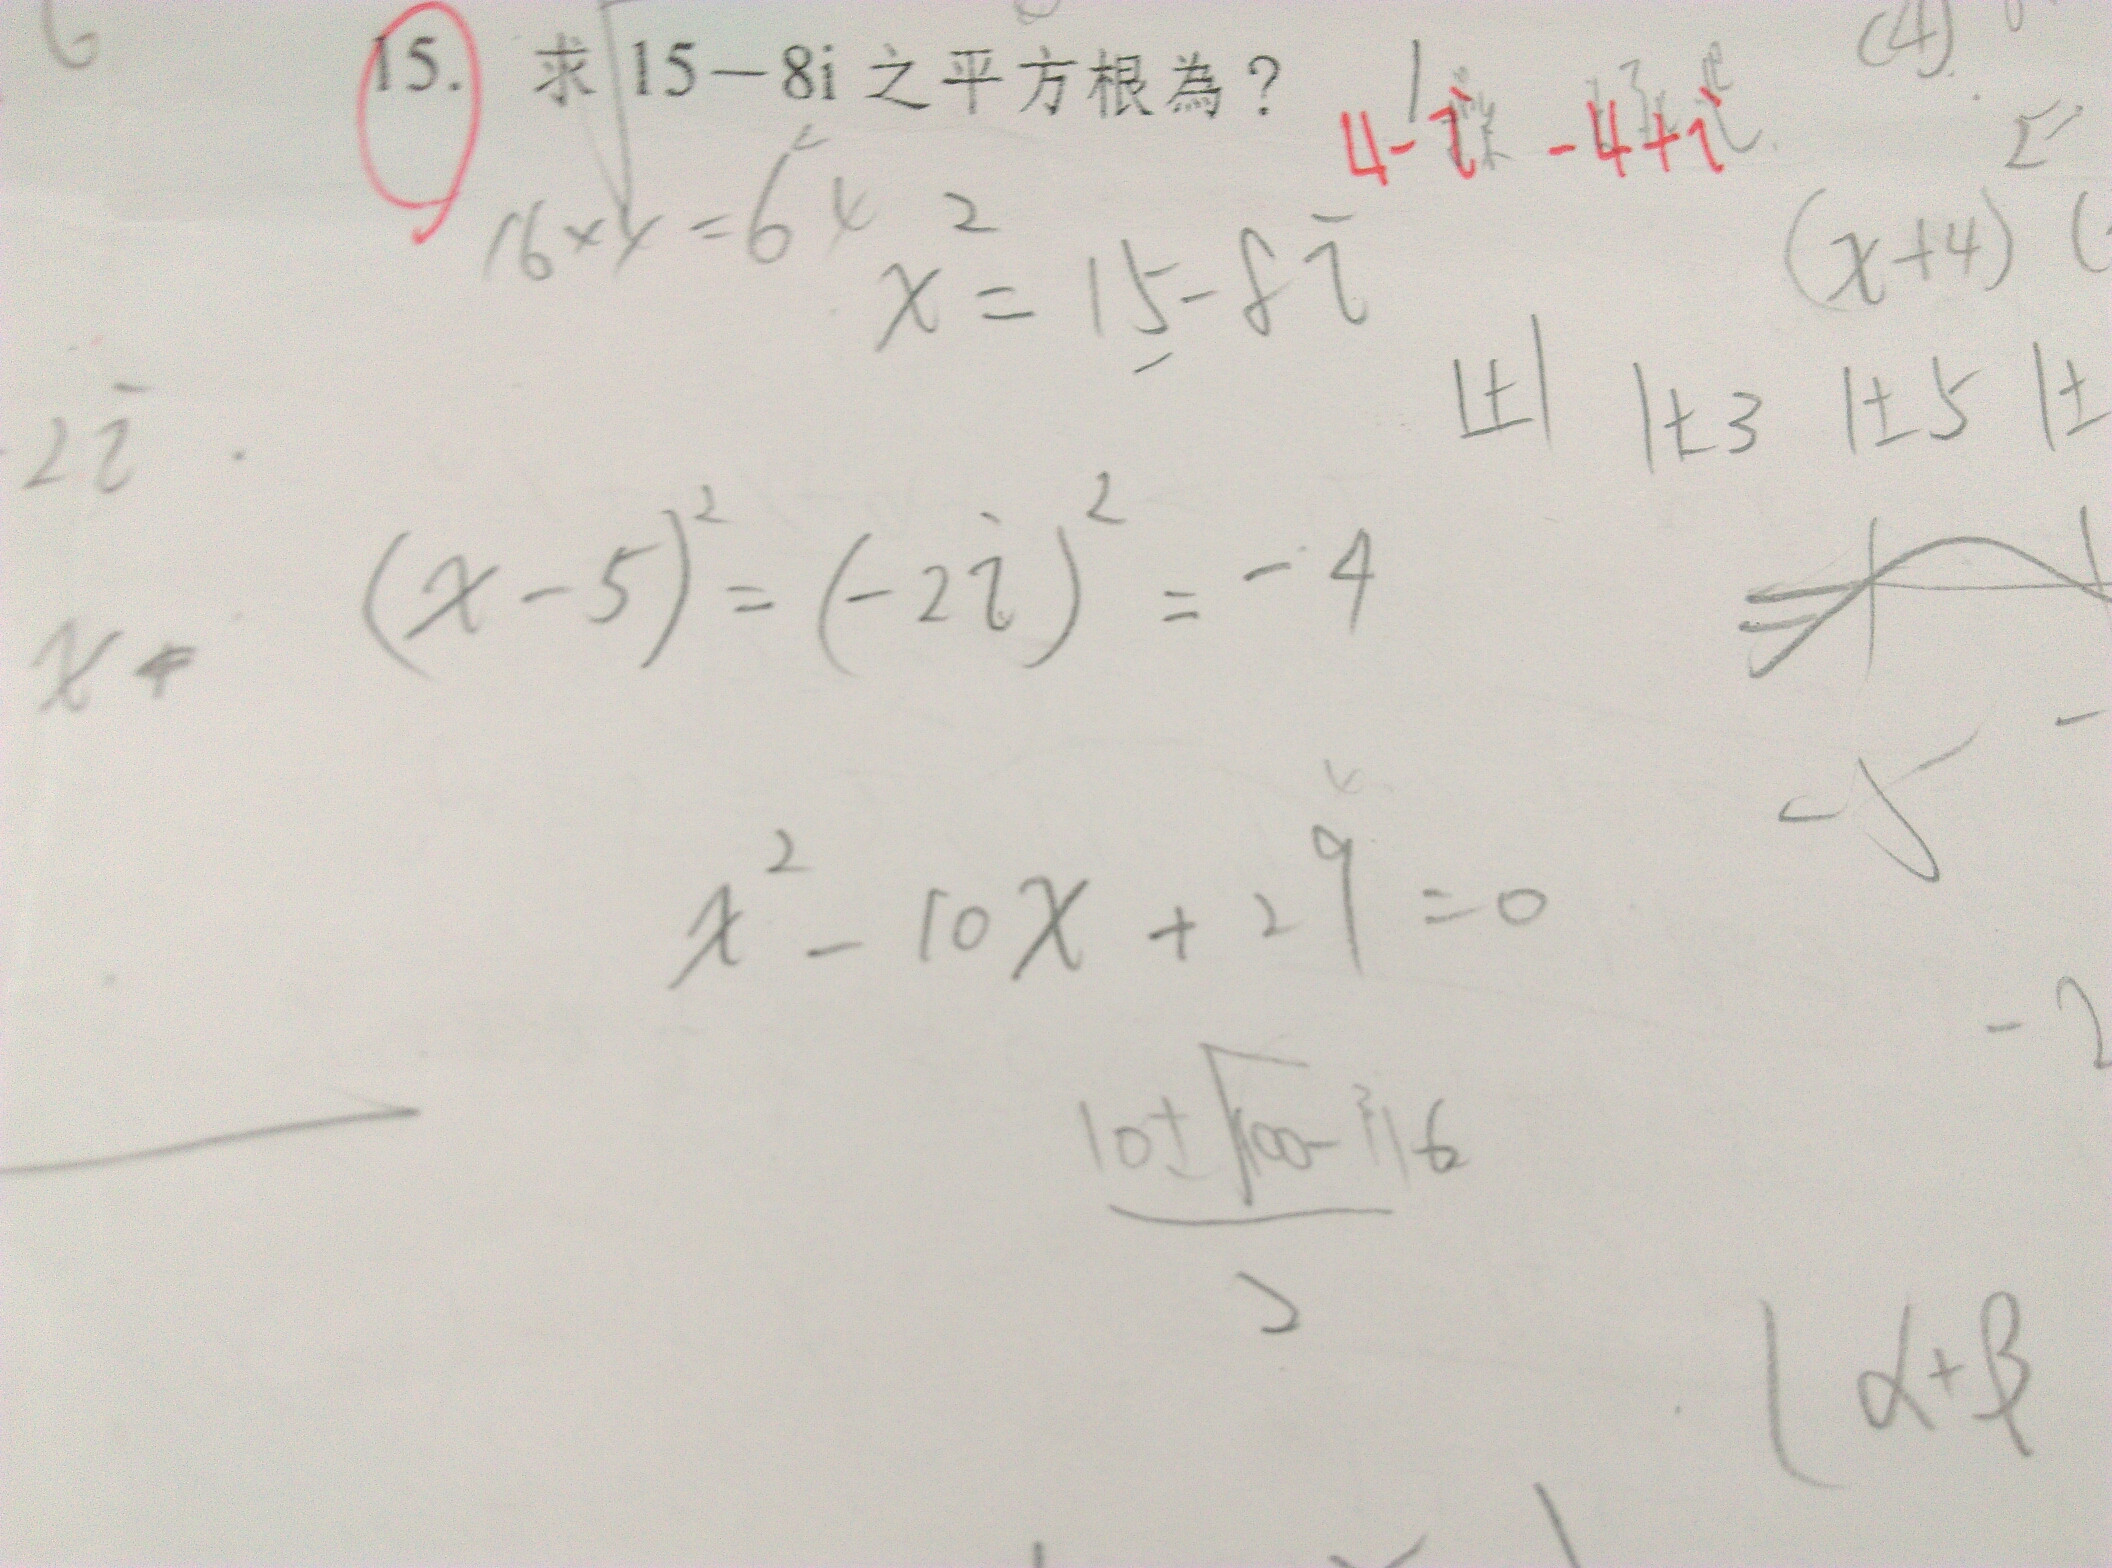 6
15. 求 15－8i 之平方根為？
4-i -4+i
(4)
16×4=64
x²=15-8i
(x+4)(
1±1 1±3 1±5 1±
2i
(x-5)²=(-2i)²=-4
x
-5
x²-10x+29=0
-2
10±√100-116
2
α+β